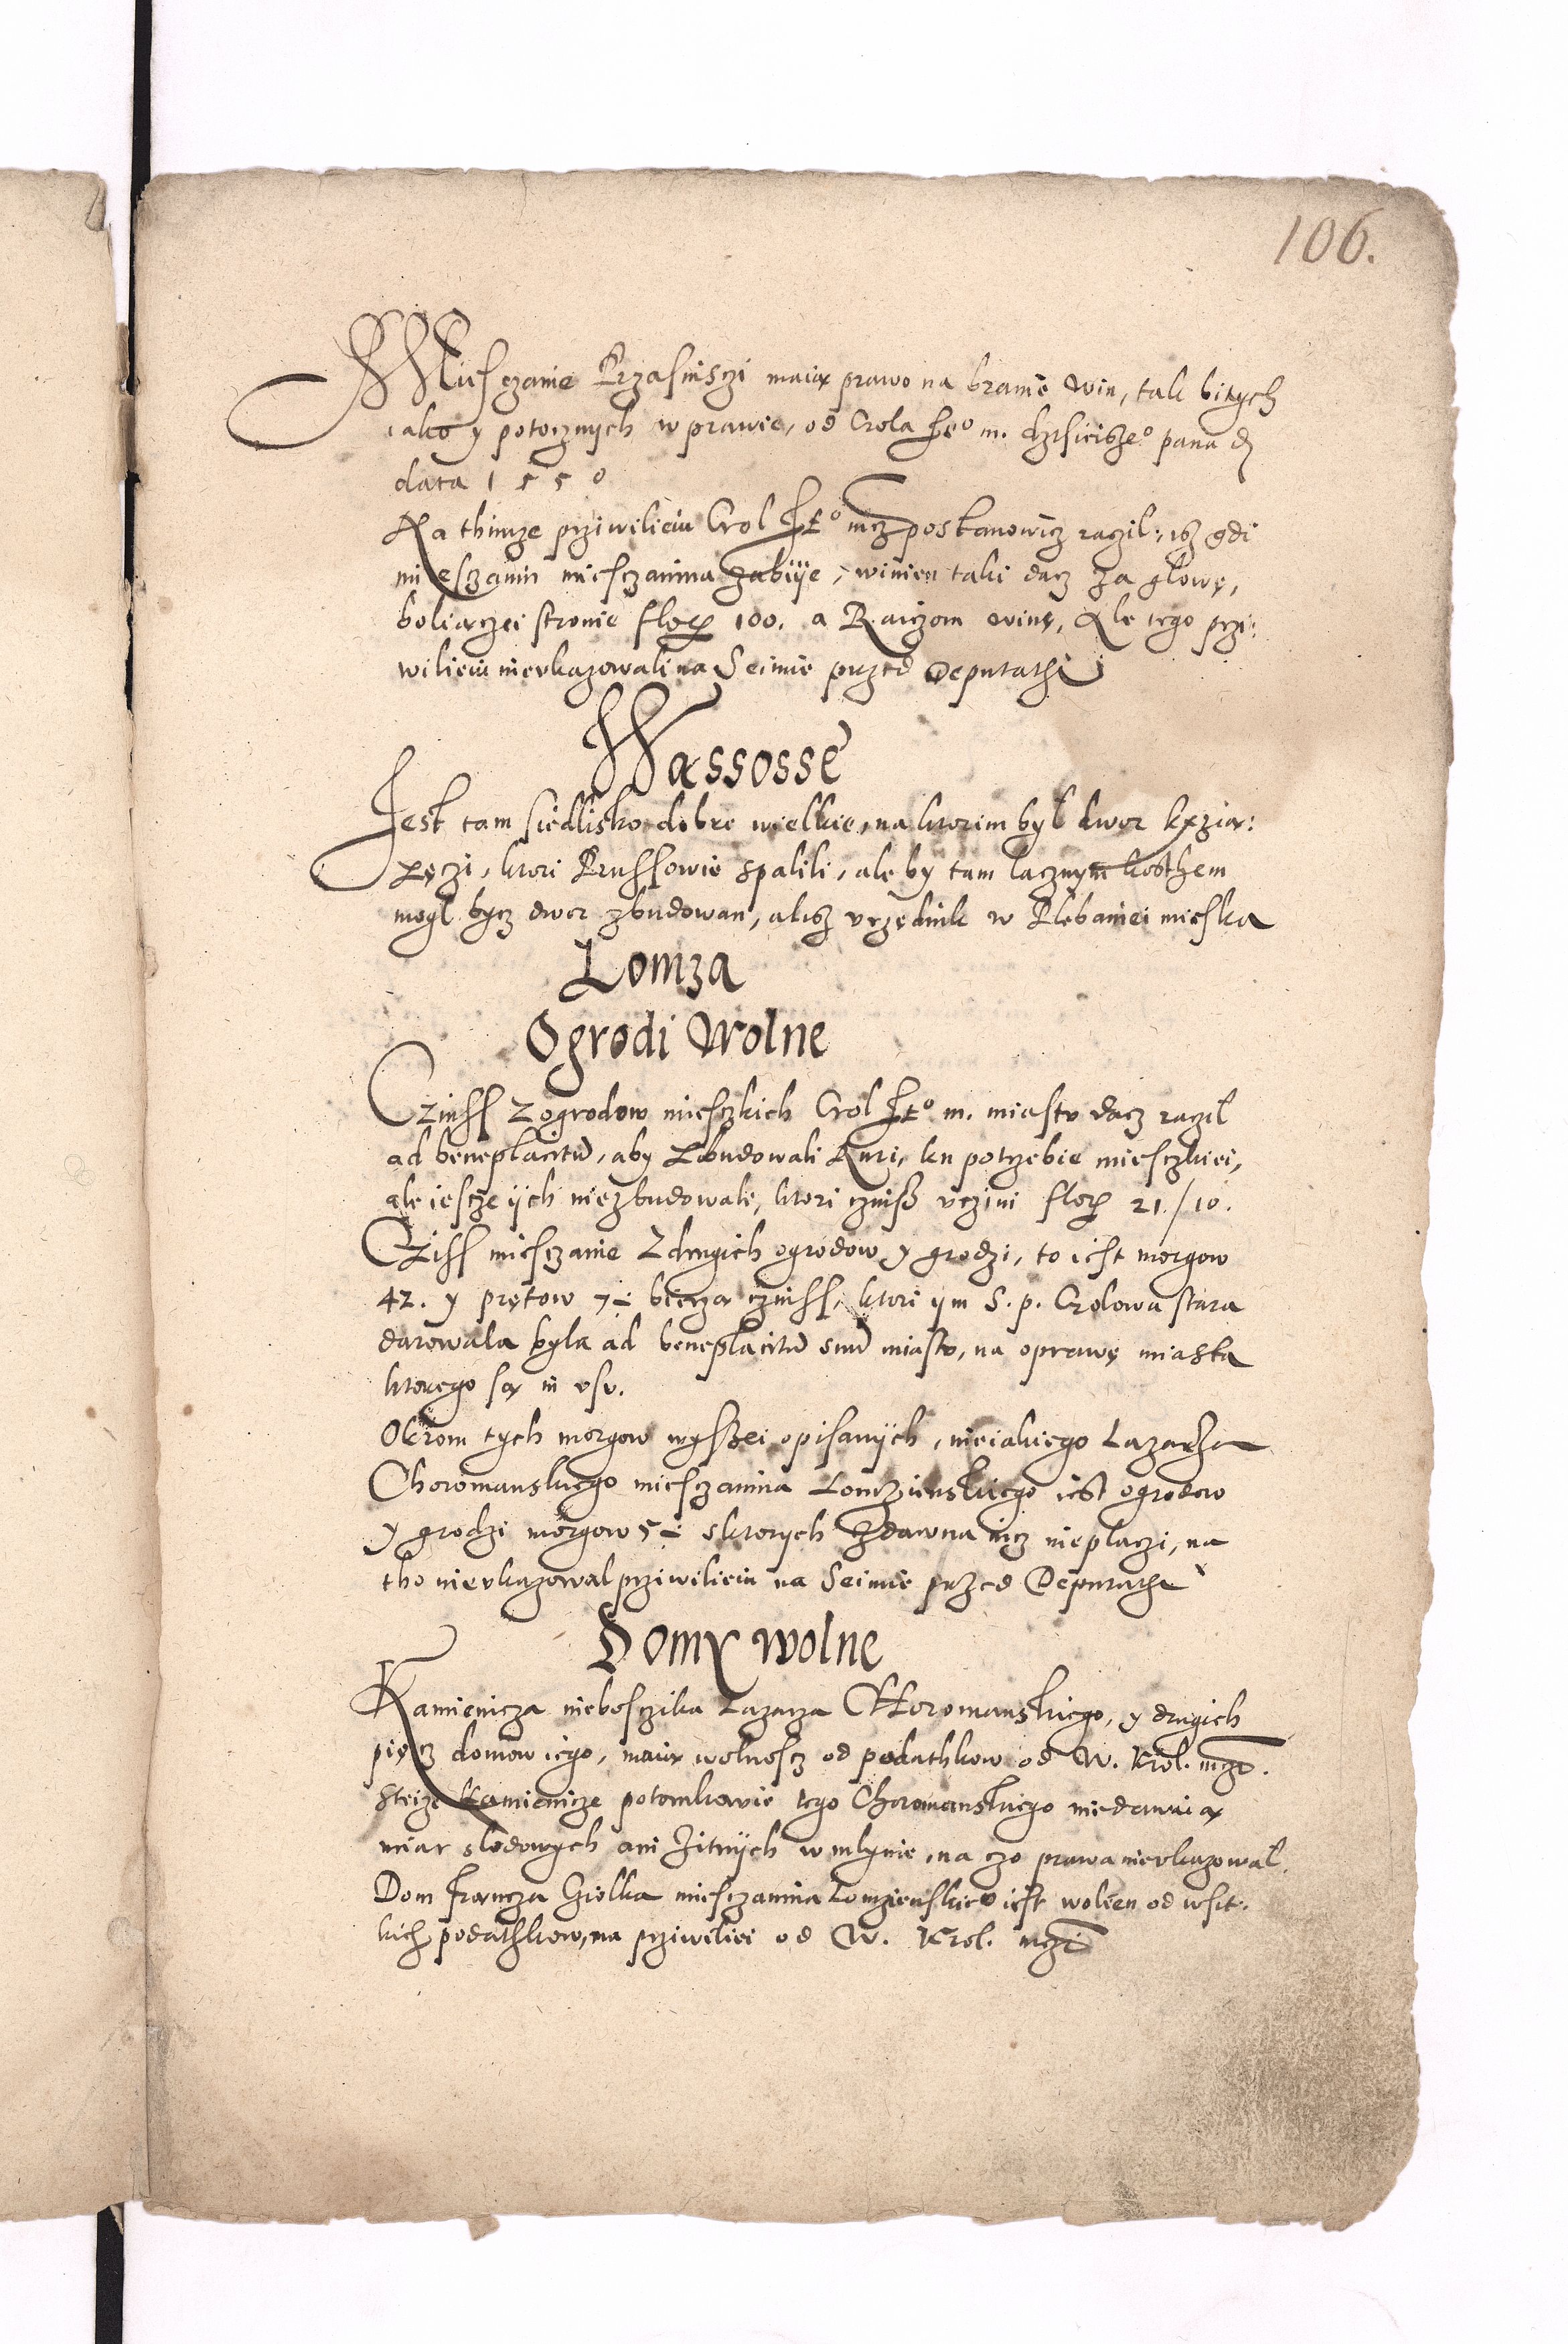 106.
Miesczanie Przasnisczi maią prawo na branie win, tak bitych
iako y potocznych w prawie, od Crola Jeº m. dzisieiszeº pana d
data 1550
Na thimze prziwilieiu Crol Jeº mcz postanowicz raczil: isz gdi
miesczanin miesczanina zabiye, winien taki dacz za glowę,
boliączei stronie flor 100. a Raiczom winę, Ale tego przi:
wilieiu nieukazowali na Seimie przed Deputathi
Wassosse
Jest tam siedlisko dobre wielkie, na ktorim byl dwor kszią:
zęczi, ktori Prussowie spalili, ale by tam lacznym kosthem
mogl bycz dwor zbudowan, alisz urzędnik w Plebaniei mieska
Lomza
Ogrodi Wolne
Czinss z ogrodow miesczkich Crol Jeº m. miastu dacz raczil
ad beneplacitu, aby zbudowali Ruri, ku potrzebie miesczkiei,
ale iescze iich niezbudowali, ktori czinsz uczini flor 21/10.
Cziss miesczanie z drugich ogrodow y grodzi, to iest morgow
42. y prętow 7÷ bierzą czinss, ktori ym S. p. Crolowa stara
darowala byla ad beneplacitu suu miastu, na oprawę miasta
ktorego są in usu.
Okrom tych morgow wysszei opisanych, nieiakiego Lazarza
Choromanskiego miesczanina Lomzienskiego iest ogrodow
y grodzi morgow 5÷ s ktorych zdawna nicz nieplaczi, na
tho nieukazowal prziwilieiu na Seimie przed Deputathi
Domy wolne
Kamienicza nieboszczika Lazarza Choromanskiego, y drugich
pięcz domow iego, maią wolnoscz od podathkow od W. Krol. mczi.
S teize Kamienicze potomkowie tego Choromanskiego niedawaią
miar slodowych ani zitnych w mlynie, na czo prawa nieukazowal.
Dom Francza Giolka miesczanina Lomzienskieº iest wolien od wsit:
kich podathkow, ma prziwiliei od W. Krol. mczi